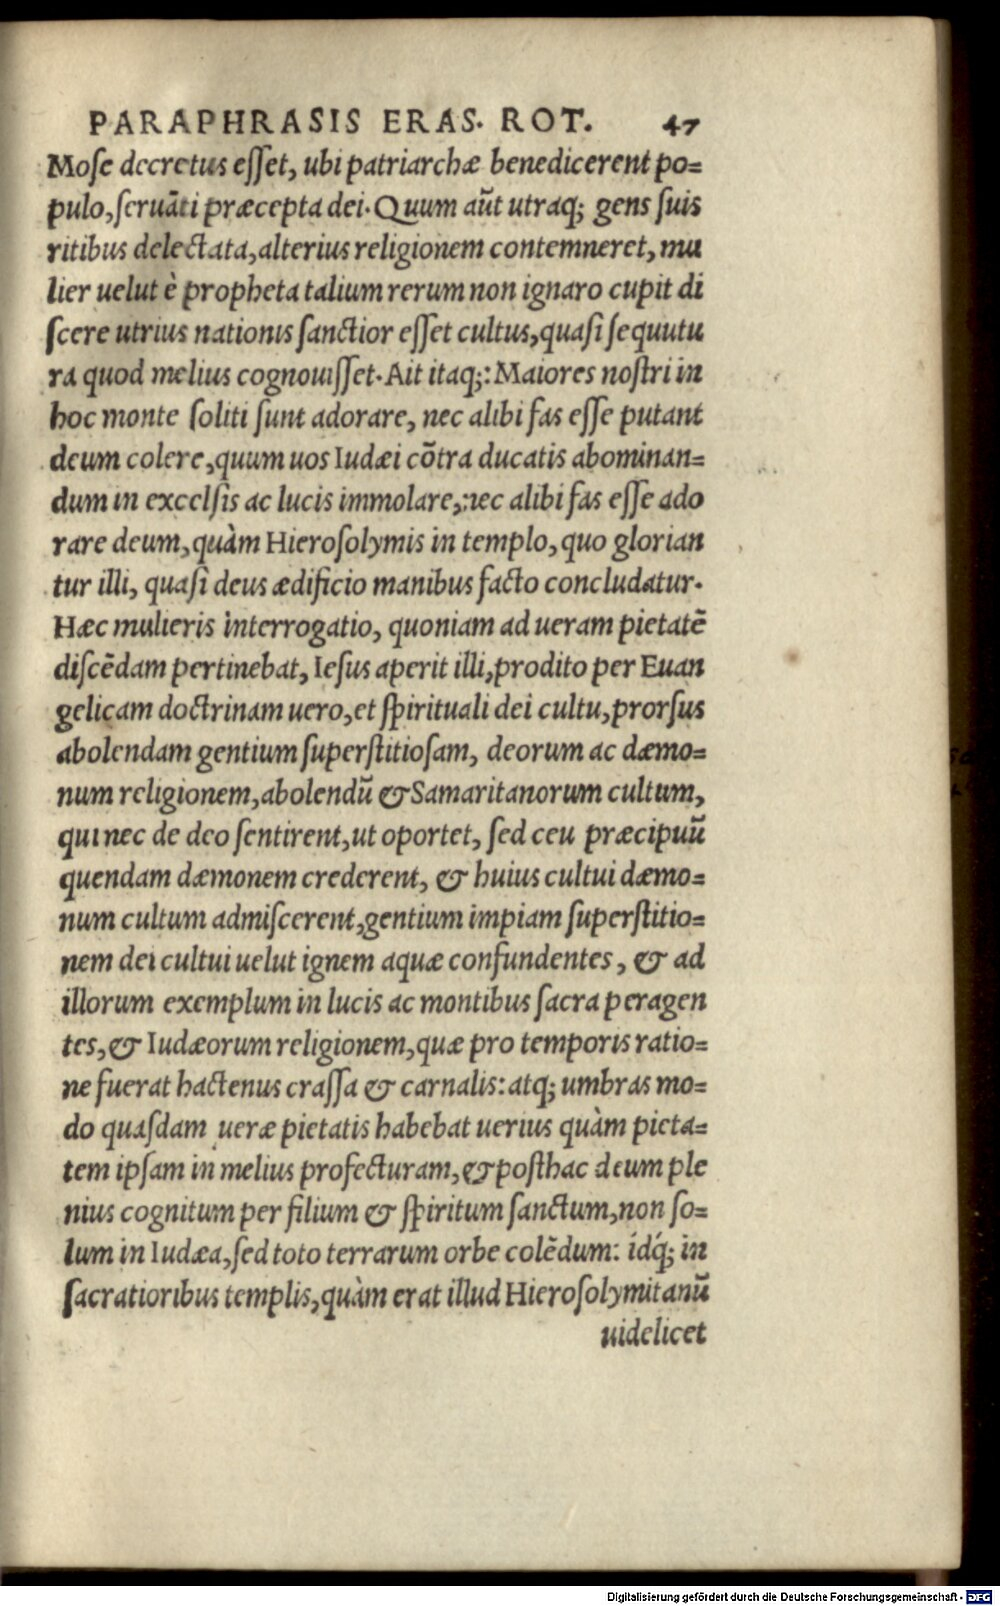 PARAPHRASIS ERAS. ROT. 47
Mose decretus esset, ubi patriarchæ benedicerent po=
pulo, seruãti præcepta dei. Quum aũt utraq; gens suis
ritibus delectata, alterius religionem contemneret, mu
lier uelut è propheta talium rerum non ignaro cupit di
scere utrius nationis sanctior esset cultus, quasi sequutu
ra quod melius cognouisset. Ait itaq;: Maiores nostri in
hoc monte soliti sunt adorare, nec alibi fas esse putant
deum colere, quum uos Iudæi cõtra ducatis abominan=
dum in excelsis ac lucis immolare, nec alibi fas esse ado
rare deum, quàm Hierosolymis in templo, quo glorian
tur illi, quasi deus ædificio manibus facto concludatur.
Hæc mulieris interrogatio, quoniam ad ueram pietatẽ
discẽdam pertinebat, Iesus aperit illi, prodito per Euan
gelicam doctrinam uero, et spirituali dei cultu, prorsus
abolendam gentium superstitiosam, deorum ac dæmo=
num religionem, abolendũ & Samaritanorum cultum,
qui nec de deo sentirent, ut oportet, sed ceu præcipuũ
quendam dæmonem crederent, & huius cultui dæmo=
num cultum admiscerent, gentium impiam superstitio=
nem dei cultui uelut ignem aquæ confundentes, & ad
illorum exemplum in lucis ac montibus sacra peragen
tes, & Iudæorum religionem, quæ pro temporis ratio=
ne fuerat hactenus crassa & carnalis: atq; umbras mo=
do quasdam ueræ pietatis habebat uerius quàm pieta=
tem ipsam in melius profecturam, & posthac deum ple
nius cognitum per filium & spiritum sanctum, non so=
lum in Iudæa, sed toto terrarum orbe colẽdum: idq́; in
sacratioribus templis, quàm erat illud Hierosolymitanũ
uidelicet
Digitalisierung gefördert durch die Deutsche Forschungsgemeinschaft - DFG